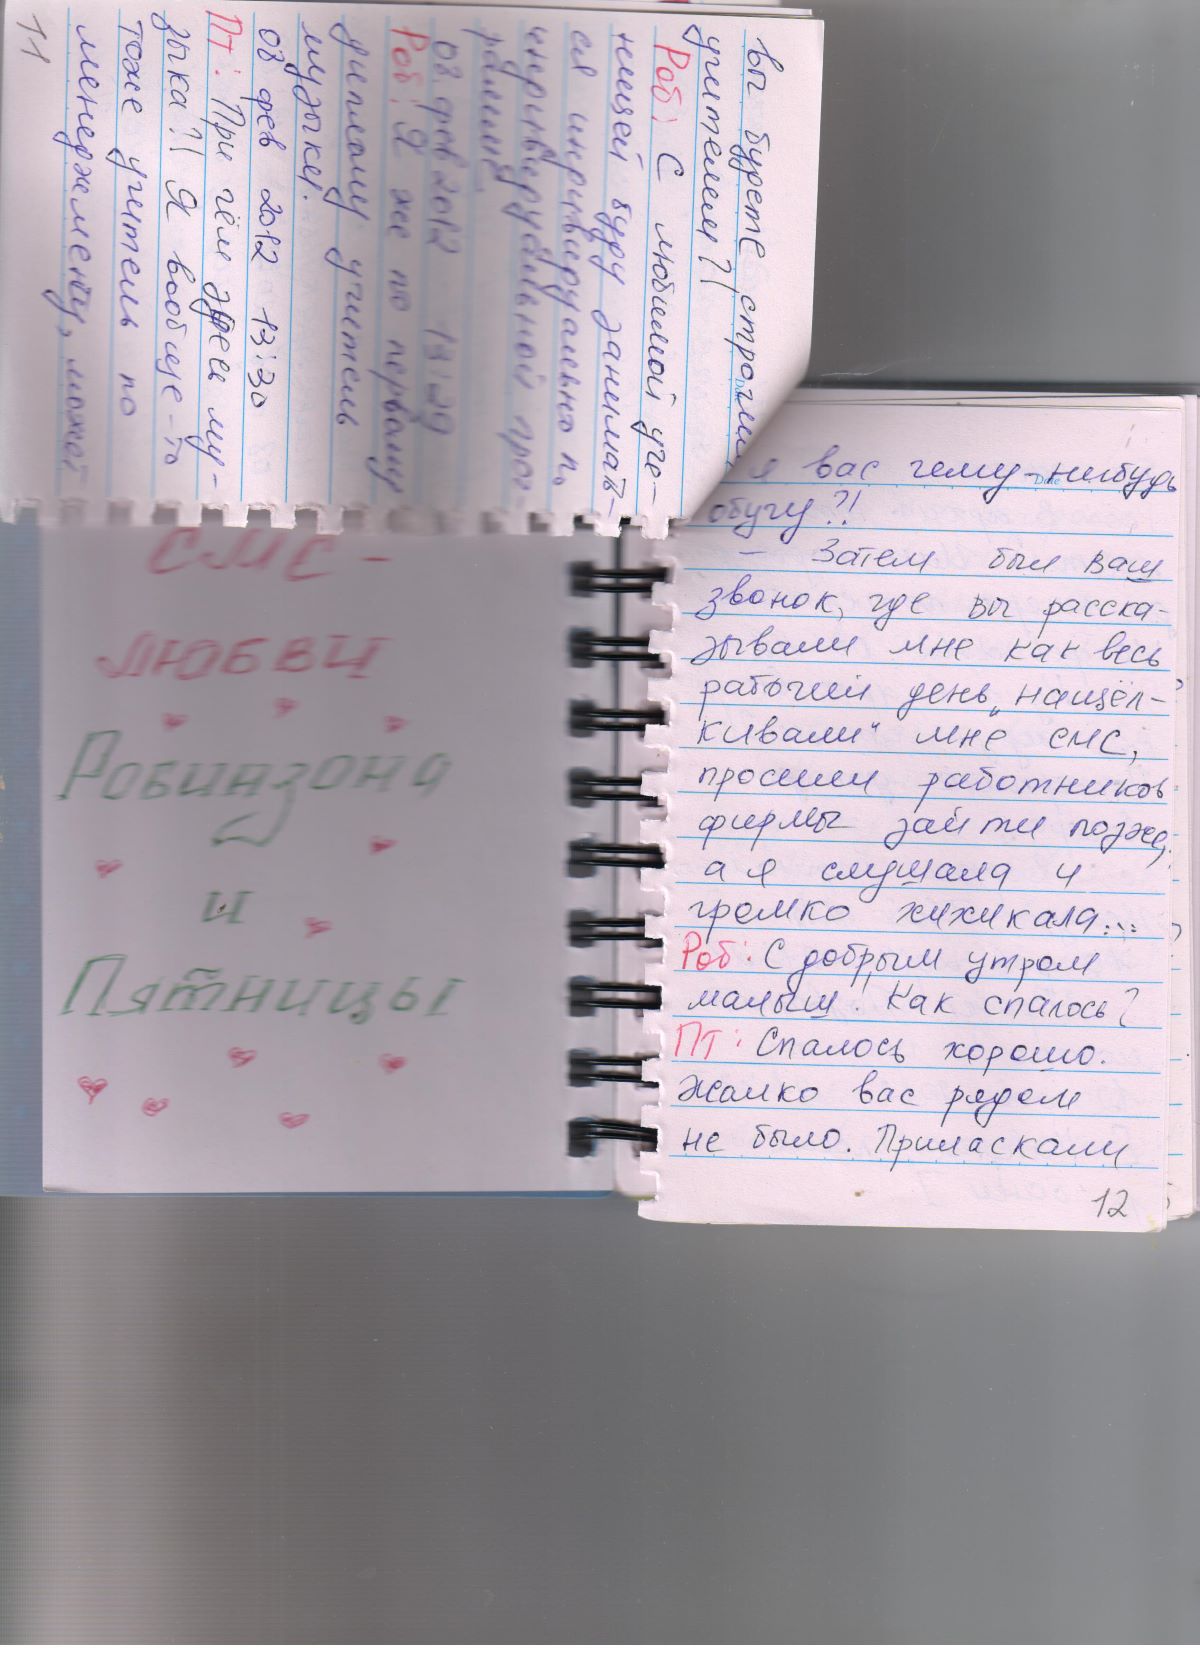 вы будете строгим
учителем?!
Роб: С любимой уче-
ницей буду занимать-
ся индивидуально по
индивидуальной прог-
рамме
03 фев 2012 13:29
Роб: Я же по первому
диплому учитель
музыки.
03 фев 2012 13:30
Пт: При чём здесь му-
зыка?! Я вообще-то
тоже учитель по
менеджменту, может
11
СМС -
ЛЮБВИ
Робинзона
и
Пятницы
я вас чему-нибудь
обучу?!
- Затем был ваш
звонок, где вы расска-
зывали мне как весь
рабочий день „нащёл-
кивали“ мне смс,
просили работников
фирмы зайти позже,
а я слушала и
громко хихикала...
Роб: С добрым утром
малыш! Как спалось?
Пт: Спалось хорошо.
Жалко вас рядом
не было. Приласкали
12